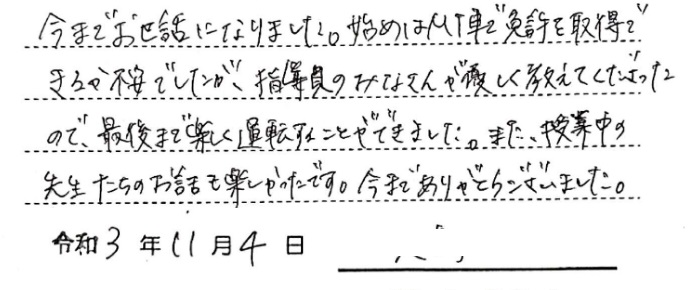 今までお世話になりました。始めはMT車で免許を取得で
きるか不安でしたが、指導員のみなさんが優しく教えてくださった
ので、最後まで楽しく運転することができました。また、授業中の
先生たちのお話も楽しかったです。今までありがとうございました。
令和3年11月4日